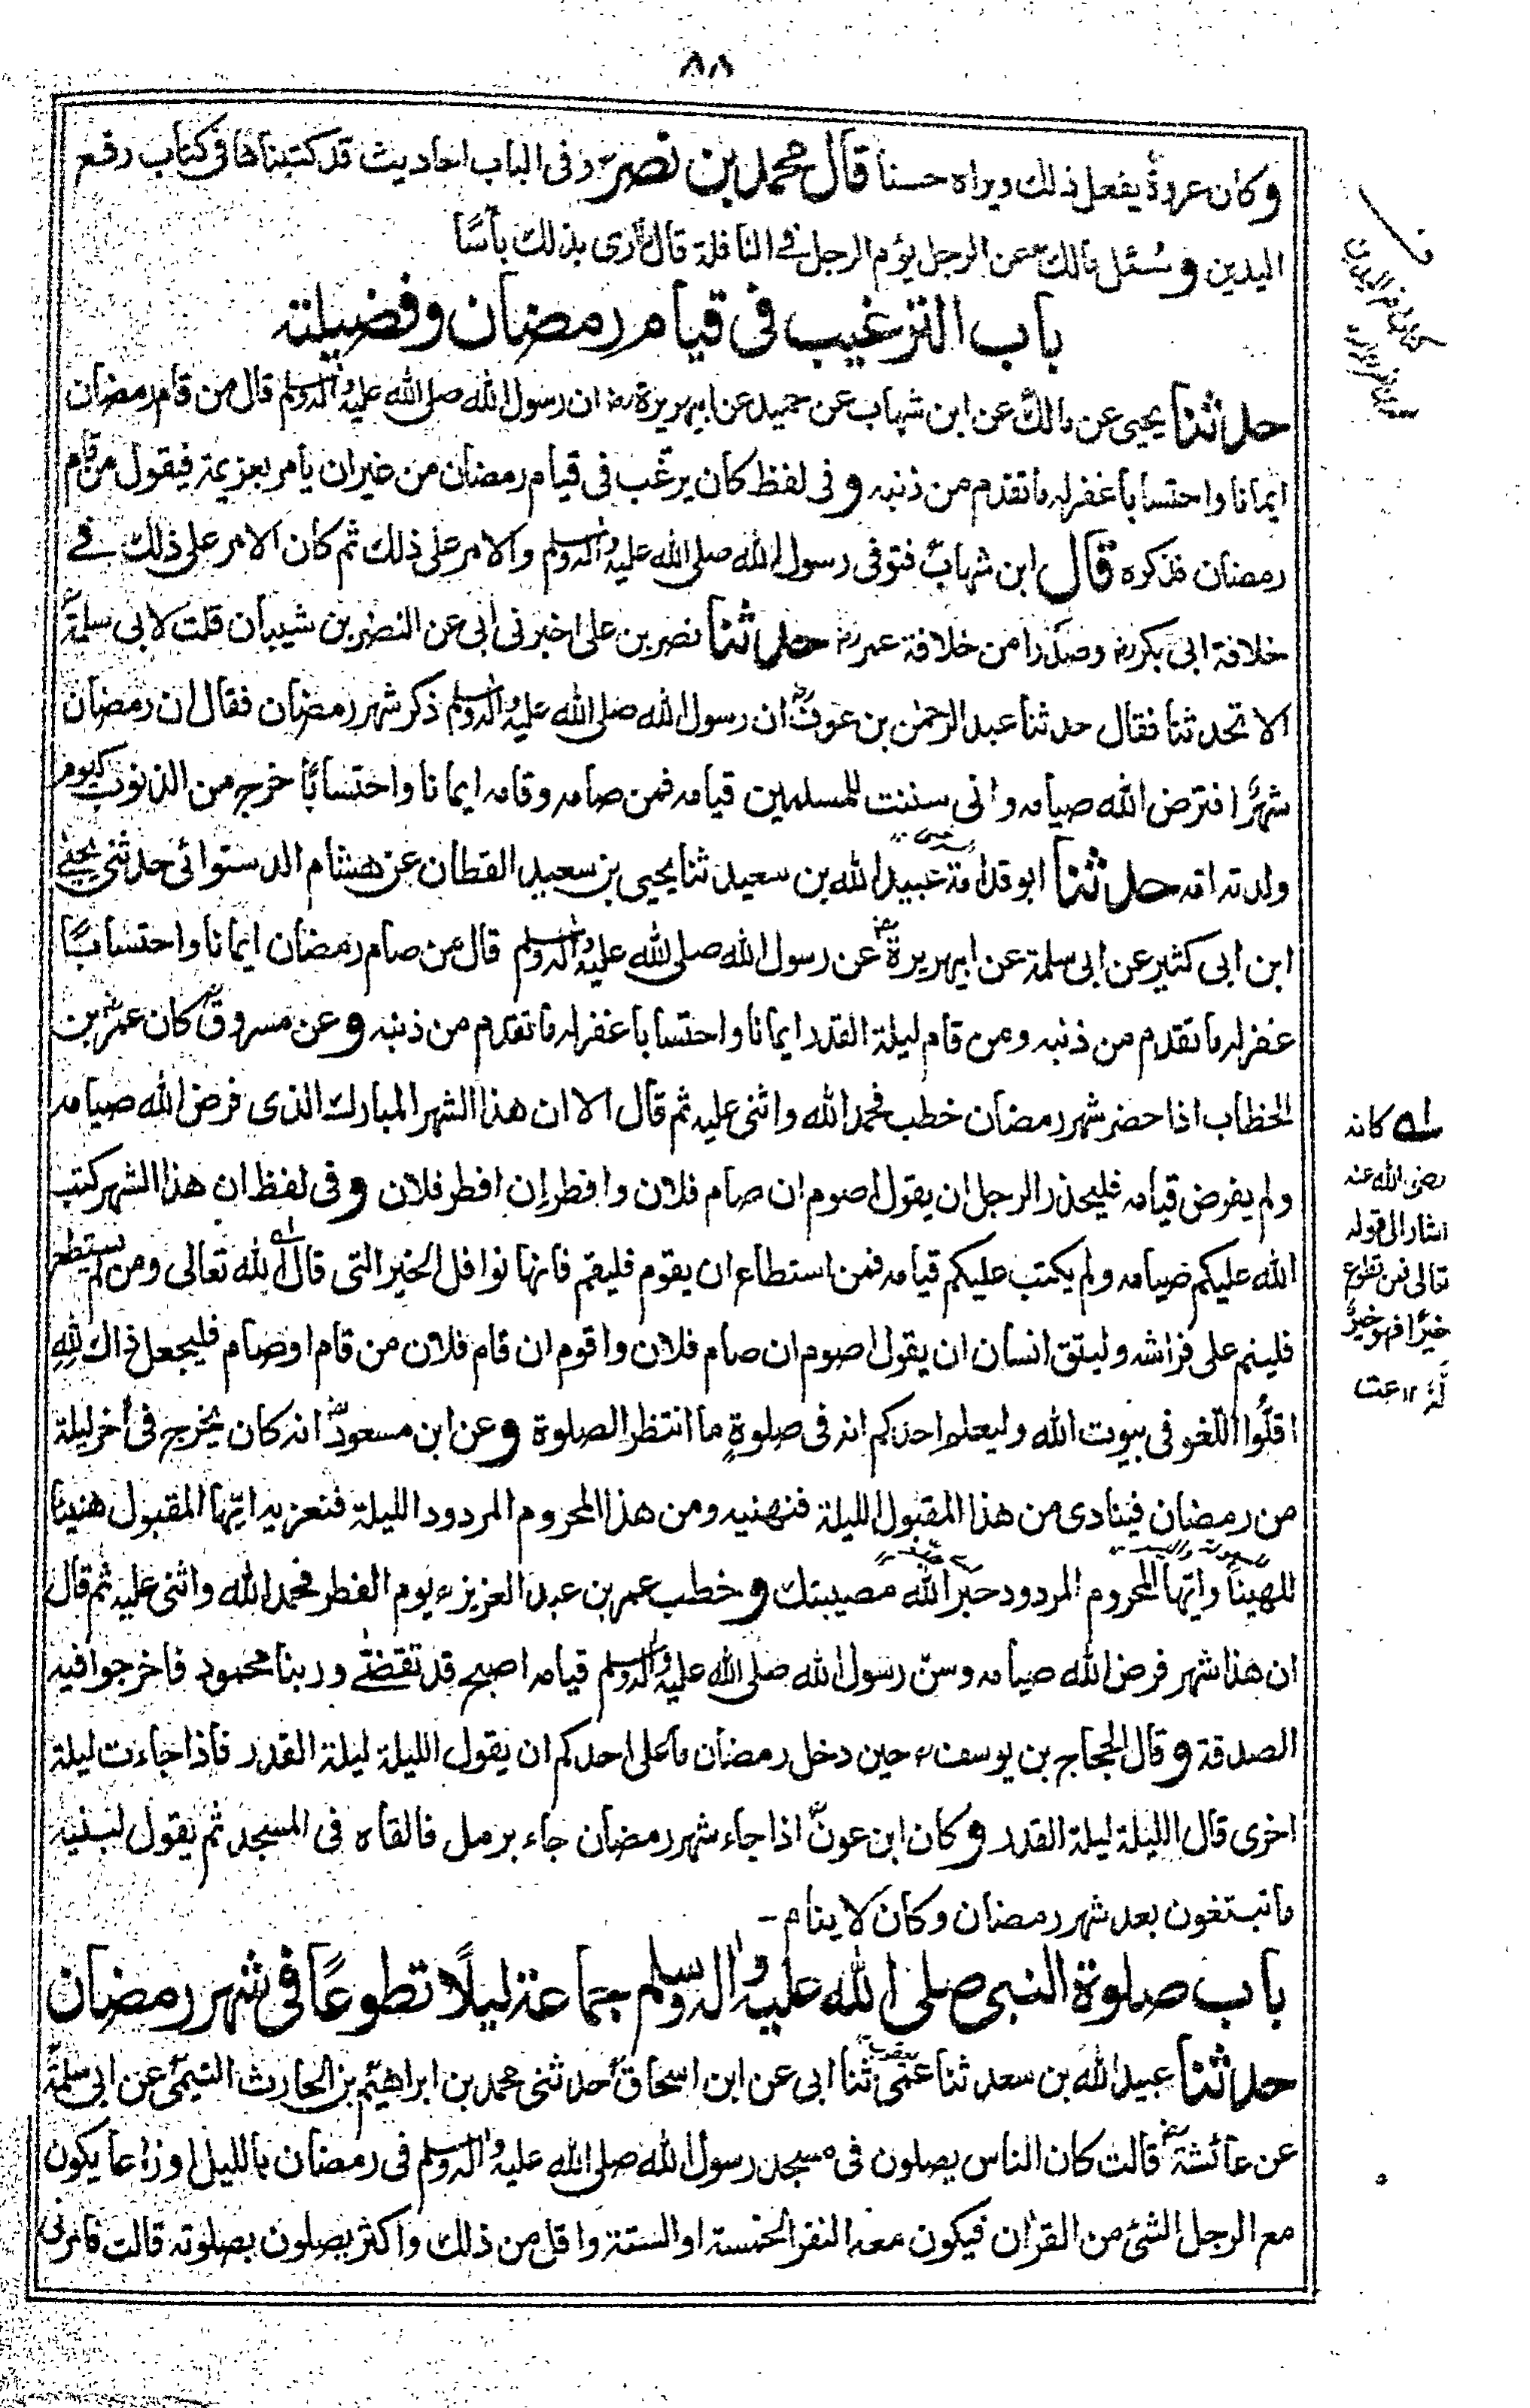 ٨٨
وكان عروة يفعل ذلك ويراه حسنا قال محمد بن نصر وفى الباب احاديث قد كتبناها فى كتاب رفع
اليدين وسئل مالك عن الرجل يؤم الرجل فے النافلة قال ارى بذلك بأسًا
باب الترغيب فى قيام رمضان وفضيلته
حدثنا يحيى عن مالك عن ابن شهاب عن حميد عن ابيهريرة رض ان رسول الله صلى الله عليه واله وسلم قال من قام رمضان
ايمانا واحتسابا غفر له ما تقدم من ذنبه وفى لفظ كان يرغّب فى قيام رمضان من غيران يأمر بعزيمة فيقول من قام
رمضان فذكره قال ابن شهاب فتوفى رسول الله صلى الله عليه واله وسلم والامر على ذلك ثم كان الامر على ذلك فے
خلافة ابى بكر رض وصدرا من خلافة عمر رض حدثنا نصر بن على اخبرنى ابى عن النضر بن شيبان قلت لابى سلمة
الا تحدثنا فقال حدثنا عبد الرحمٰن بن عوف ان رسول الله صلى الله عليه واله وسلم ذكر شهر رمضان فقال ان رمضان
شهرٌ افترض الله صيامه وانى سننت للمسلمين قيامه فمن صامه وقامه ايمانا واحتسابًا خرج من الذنوب كيوم
ولدته امه حدثنا ابو قدامة عبيد الله بن سعيد ثنا يحيى بن سعيد القطان عن هشام الدستوائى حدثنى يحيے
ابن ابى كثير عن ابى سلمة عن ابيهريرة رض عن رسول الله صلى الله عليه واله وسلم قال من صام رمضان ايمانا واحتسابًا
غفر له ما تقدم من ذنبه ومن قام ليلة القدر ايمانا واحتسابا غفر له ما تقدم من ذنبه وعن مسروق كان عمر بن
الخطاب اذا حضر شهر رمضان خطب فحمد الله واثنى عليه ثم قال الا ان هذا الشهر المبارك الذى فرض الله صيامه
ولم يفرض قيامه فليحذر الرجل ان يقول اصوم ان صام فلان وافطر ان افطر فلان وفى لفظ ان هذا الشهر كتب
الله عليكم صيامه ولم يكتب عليكم قيامه فمن استطاع ان يقوم فليقم فانها نوافل الخير التى قال الله تعالى ومن لم يستطع
فلينم على فراشه وليتق انسان ان يقول اصوم ان صام فلان واقوم ان قام فلان من قام او صام فليجعل ذاك للهِ
اقلّوا اللّغو فى بيوت الله وليعلم احدكم انه فى صلوةٍ ما انتظر الصلوة وعن ابن مسعود انه كان يخرج فى اخر ليلة
من رمضان فينادى من هذا المقبول الليلة فنهنيه ومن هذا المحروم المردود الليلة فنعزيه ايّها المقبول هنيئا
للهينا وايّها المحروم المردود جبر الله مصيبتك وخطب عمر بن عبد العزيز يوم الفطر فحمد الله واثنى عليه ثم قال
ان هذا شهر فرض الله صيامه وسنّ رسول الله صلى الله عليه واله وسلم قيامه اصبح قد تقضّے وربنا محمود فاخرجوا فيه
الصدقة وقال الحجاج بن يوسف حين دخل رمضان ما على احدكم ان يقول الليلة ليلة القدر فاذا جاءت ليلة
اخرى قال الليلة ليلة القدر وكان ابن عون اذا جاء شهر رمضان جاء برمل فالقاه فى المسجد ثم يقول لبنيه
ما تبتغون بعد شهر رمضان وكان لا ينام -
باب صلوة النبى صلى الله عليه واله وسلم جماعة ليلًا تطوعًا فى شهر رمضان
حدثنا عبيد الله بن سعد ثنا عمّى ثنا ابى عن ابن اسحاق حدثنى محمد بن ابراهيم بن الحارث التيمى عن ابى سلمة
عن عائشة رض قالت كان الناس يصلون فى مسجد رسول الله صلى الله عليه واله وسلم فى رمضان بالليل اوزاعا يكون
مع الرجل الشئ من القرآن فيكون معه النفر الخمسة او الستة واقل من ذلك واكثر يصلون بصلوته قالت فامرنى
كانه
رضى الله عنه
اشار الى قوله
تعالى فمن تطوع
خيرًا فهو خيرٌ
لَهٗ ١٢